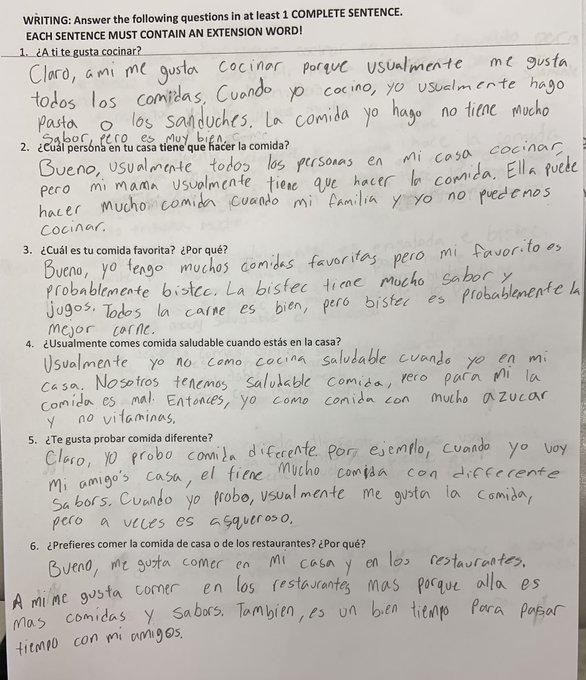 WRITING: Answer the following questions in at least 1 COMPLETE SENTENCE.
EACH SENTENCE MUST CONTAIN AN EXTENSION WORD!
1. ¿A ti te gusta cocinar?
Claro, a mi me gusta cocinar porque usualmente me gusta
todos los comidas. Cuando yo cocino, yo usualmente hago
pasta o los sanduches. La comida yo hago no tiene mucho
sabor, pero es muy bien.
2. ¿Cuál persona en tu casa tiene que hacer la comida?
Bueno, usualmente todos las personas en mi casa cocinar,
pero mi mama usualmente tiene que hacer la comida. Ella puede
hacer mucho comida cuando mi familia y yo no puedemos
cocinar.
3. ¿Cuál es tu comida favorita? ¿Por qué?
Bueno, yo tengo muchos comidas favoritas pero mi favorito es
probablemente bistec. La bistec tiene mucho sabor y
jugos. Todos la carne es bien, pero bistec es probablemente la
mejor carne.
4. ¿Usualmente comes comida saludable cuando estás en la casa?
Usualmente yo no como cocina saludable cuando yo en mi
casa. Nosotros tenemos saludable comida, pero para mi la
comida es mal. Entonces, yo como comida con mucho azucar
y no vitaminas.
5. ¿Te gusta probar comida diferente?
Claro, yo probo comida diferente por ejemplo, cuando yo voy
mi amigo's casa, el tiene mucho comida con differente
sabors. Cuando yo probo, usualmente me gusta la comida,
pero a veces es asqueroso.
6. ¿Prefieres comer la comida de casa o de los restaurantes? ¿Por qué?
Bueno, me gusta comer en mi casa y en los restaurantes.
A mi me gusta comer en los restaurantes mas porque alla es
mas comidas y sabors. Tambien, es un bien tiempo para pasar
tiempo con mi amigos.